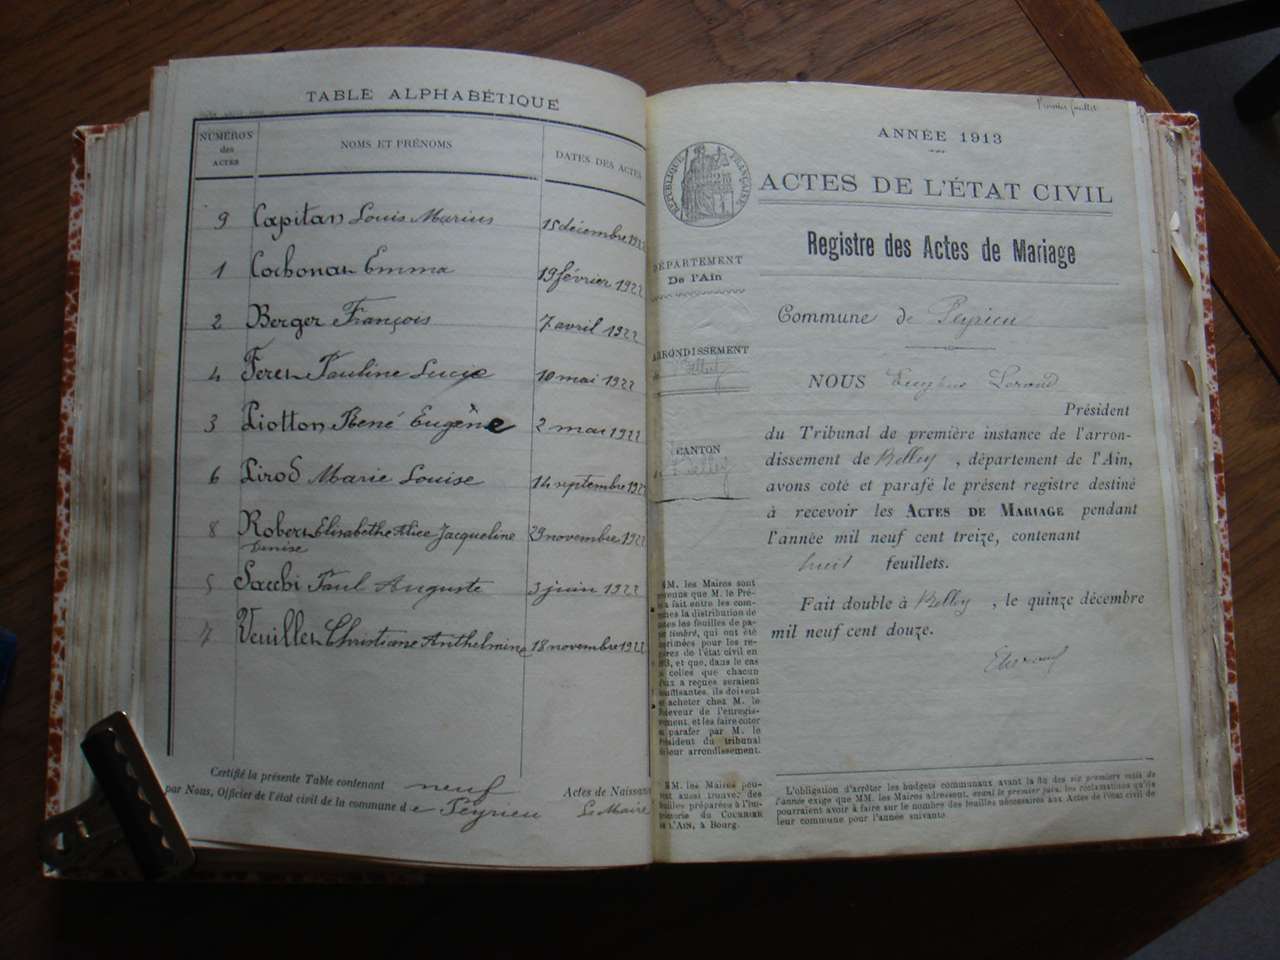 TABLE ALPHABÉTIQUE
NUMÉROS des ACTES
NOMS ET PRÉNOMS
DATES DES ACTES
9 Capitan Louis Marius 15 décembre 1922
1 Emma 19 février 1922
2 Berger François 7 avril 1922
4 Pauline Lucie 10 mai 1922
3 Piotton René Eugène 2 mai 1922
6 Pirod Marie Louise 14 septembre 1922
8 Robert Elisabethe Alice Jacqueline 29 novembre 1922
Denise
5 Sacchi Paul Auguste 3 juin 1922
7 Veuillet Christiane Anthelmine 18 novembre 1922
Certifié la présente Table contenant neuf Actes de Naissance
par Nous, Officier de l'état civil de la commune de Peyrieu Le Maire
Premier feuillet
ANNÉE 1913
RÉPUBLIQUE FRANÇAISE
ACTES DE L'ÉTAT CIVIL
Registre des Actes de Mariage
DÉPARTEMENT
De l'Ain
Commune de Peyrieu
ARRONDISSEMENT
de Belley
NOUS Eugène
Président
CANTON
de Belley
du Tribunal de première instance de l'arron-
dissement de Belley, département de l'Ain,
avons coté et parafé le présent registre destiné
à recevoir les ACTES DE MARIAGE pendant
l'année mil neuf cent treize, contenant
huit feuillets.
Fait double à Belley, le quinze décembre
mil neuf cent douze.
MM. les Maires sont
prévenus que M. le Pré-
fet a fait entre les com-
munes la distribution de
toutes les feuilles de pa-
pier timbré, qui ont été
imprimées pour les re-
gistres de l'état civil en
1913, et que, dans le cas
où celles que chacun
d'eux a reçues seraient
insuffisantes, ils doivent
en acheter chez M. le
Receveur de l'enregis-
trement, et les faire coter
et parafer par M. le
Président du tribunal
de leur arrondissement.
MM. les Maires pou-
ront aussi trouver des
feuilles préparées à l'im-
primerie du COURRIER
DE L'AIN, à Bourg.
L'obligation d'arrêter les budgets communaux avant la fin des six premiers mois de
l'année exige que MM. les Maires adressent, avant le premier juin, les réclamations qu'ils
pourraient avoir à faire sur le nombre des feuilles nécessaires aux Actes de l'état civil de
leur commune pour l'année suivante.